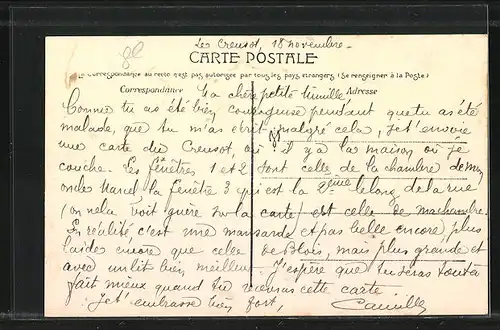 Le Creusot, 18 novembre -
CARTE POSTALE
La correspondance au recto n'est pas autorisée par tous les pays étrangers (Se renseigner à la Poste)
Correspondance Adresse
Ma chère petite
Comme tu as été bien courageuse pendant que tu as été
malade, que tu m'as écrit malgré cela, je t'envoie
une carte du Creusot, où il y a la maison où je
couche. Les fenêtres 1 et 2 sont celle de la chambre de mon
oncle la fenêtre 3 qui est la 2ème le long de la rue
(on ne la voit guère sur la carte) est celle de ma chambre.
En réalité c'est une mansarde et pas belle encore plus
laide encore que celle de Blois, mais plus grande et
avec un lit bien meilleur. J'espère que tu seras tout à
fait mieux quand tu recevras cette carte
Je t'embrasse bien fort, Camille